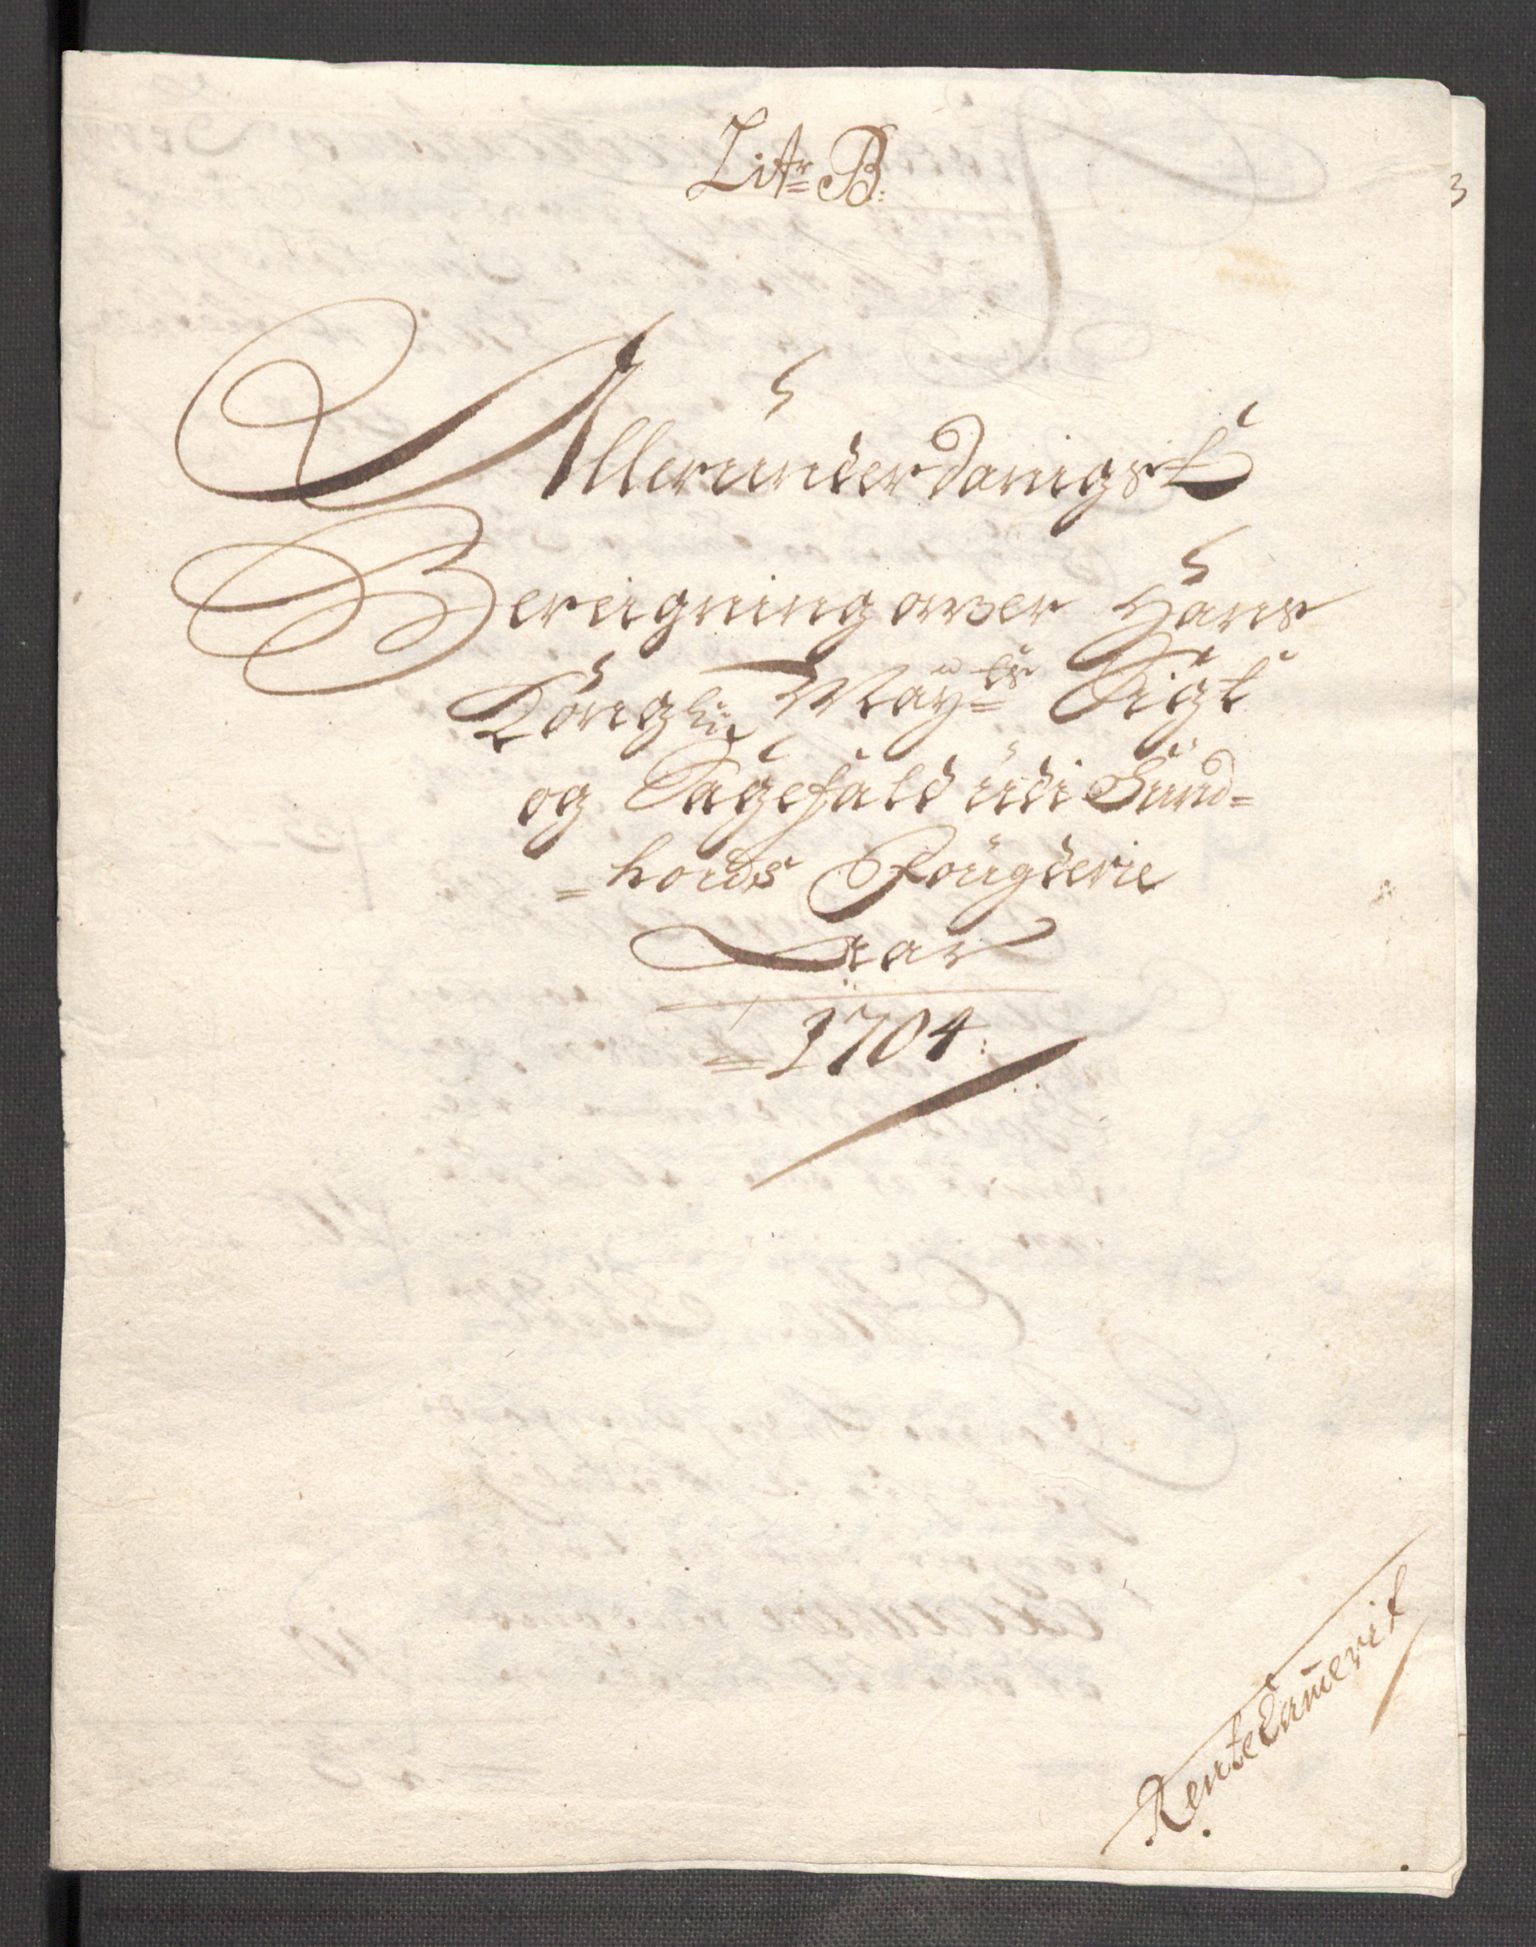 Litr B:
3
Allerunderdanigst
Beregning ower Hans
Kongelig Mayts Sigt
og Sagefald udi Sund=
=hords Fougderie
Aar
=1704:
Rentecammerit